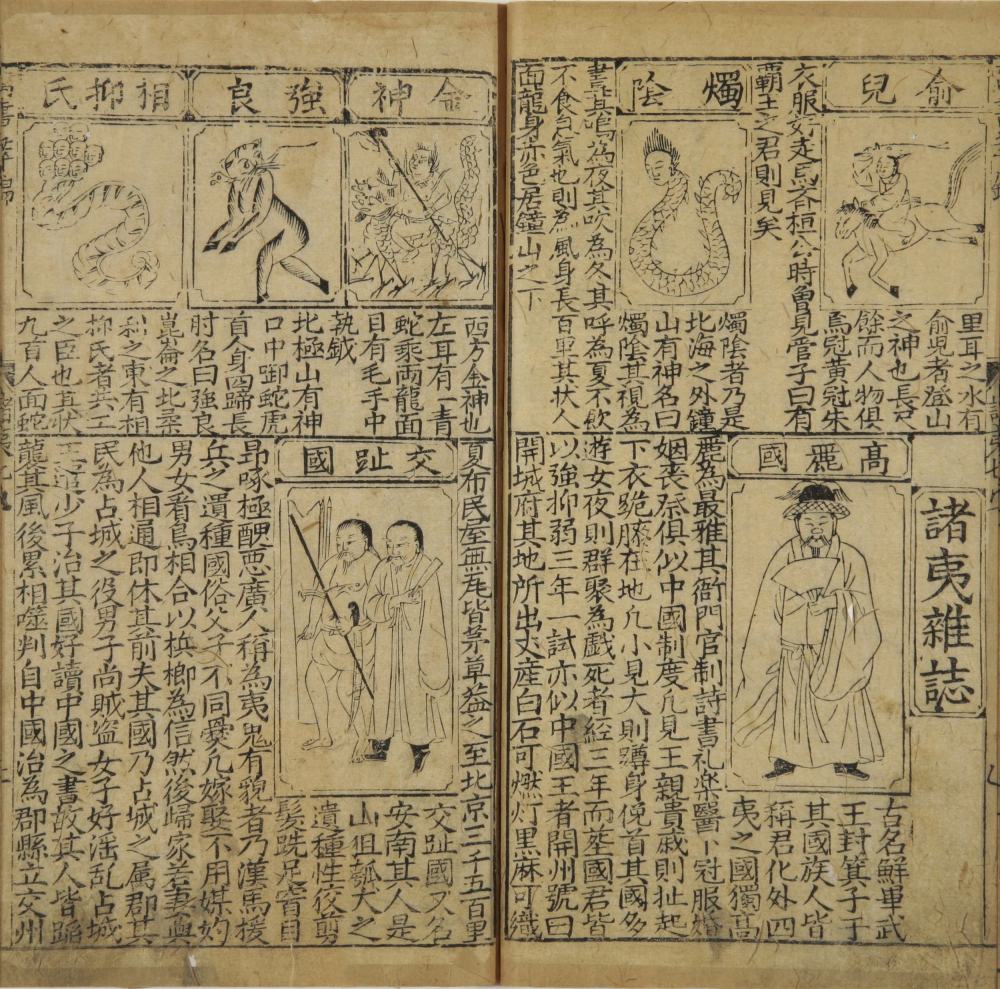 俞兒
里耳之水有
俞児者登山
之神也長尺
餘而人物俱
烏冠黃冠朱
衣服好走馬斉桓公時曽見管子曰有
霸王之君則見矣
燭陰
燭陰者乃是
北海之外鐘
山有神名曰
燭陰其視為
晝其為夜其吹為冬其呼為夏不飲
不食息氣也則為風身長百里其状人
面龍身赤色居鐘山之下
諸夷雜誌
高麗國
古名鮮卑武
王封箕子于
其國族人皆
稱君化外四
夷之國獨高
麗為最雅其衙門官制詩書礼楽醫卜冠服婚
姻喪祭俱似中國制度凡見王親貴戚則扯起
下衣跪膝在地凡小見大則蹲身俛首其國多
遊女夜則群聚為戲死者經三年而塟國君皆
以強抑弱三年一試亦似中國王者開州號曰
開城府其地所出丈産白石可燃灯黑麻可織
金神
西方金神也
左耳有一青
蛇乘兩龍面
目有毛手中
執鉞
強良
北極山有神
口中啣蛇虎
首人身四蹄長
肘名曰强良
相抑氏
崑崙之北柔
利之東有相
抑氏者共工
之臣也其状
九首人面蛇
交趾國
交趾國又名
安南其人是
山狙瓠犬之
遺種性狡剪
髪跣足窅目
昂喙極醜悪廣人稱為夷鬼有貌者乃漢馬援
兵之遺種國俗父子不同㸑凡嫁娶不用媒妁
男女看鳥相合以梹榔為信然後歸家若妻與
他人相通即休其前夫其國乃占城之属郡其
民為占城之役男子尚賊盗女子好淫乱占城
王遣少子治其國好讀中國之書故其人皆蹈
龍其風後累相噬判自中國治為郡縣立交州
夏布民屋無瓦皆茅草葢之至北京三千五百里